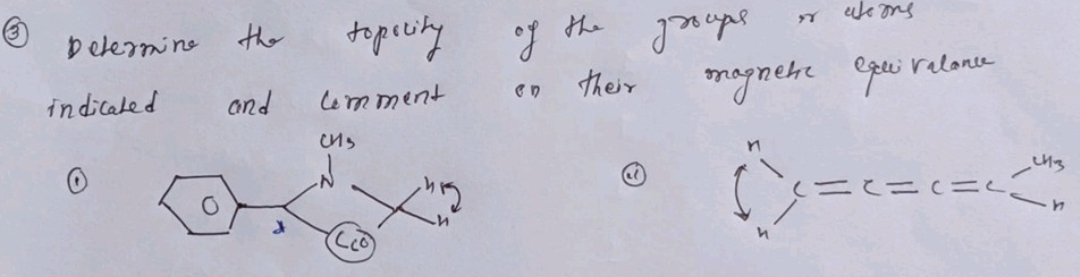 ③ Determine the topicity of the groups or atoms
indicated and comment on their magnetic equivalance
① CH3
N
H
H
C=O
②
H
H
C=C=C=C
CH3
H